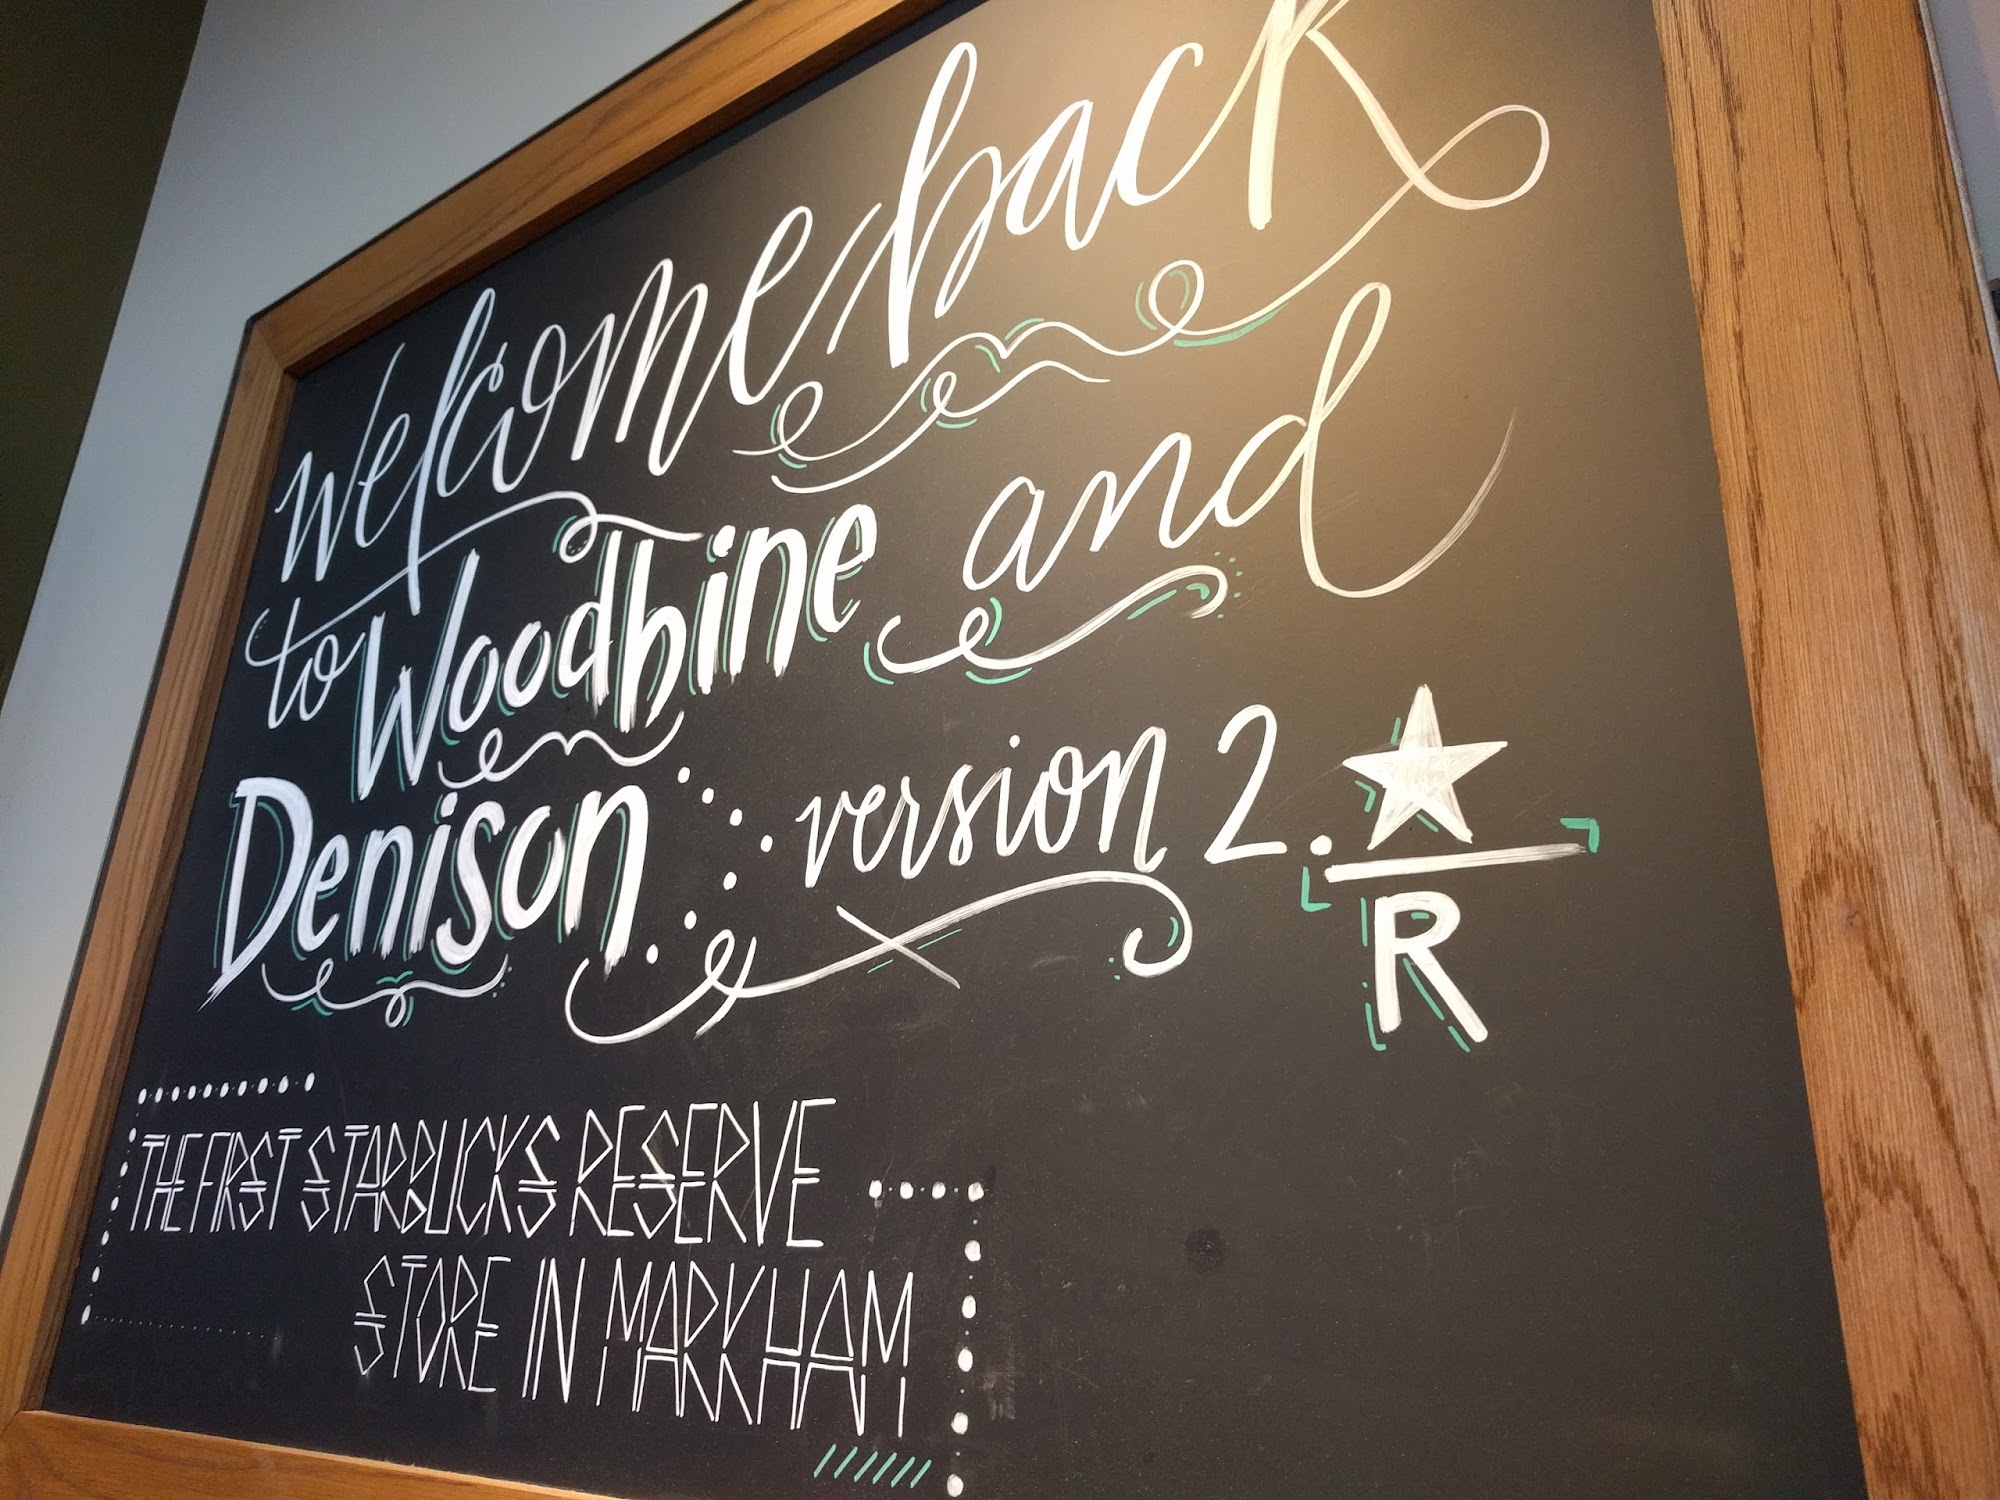 welcome back
to Woodbine and
Denison version 2.★
R
THE FIRST STARBUCKS RESERVE
STORE IN MARKHAM